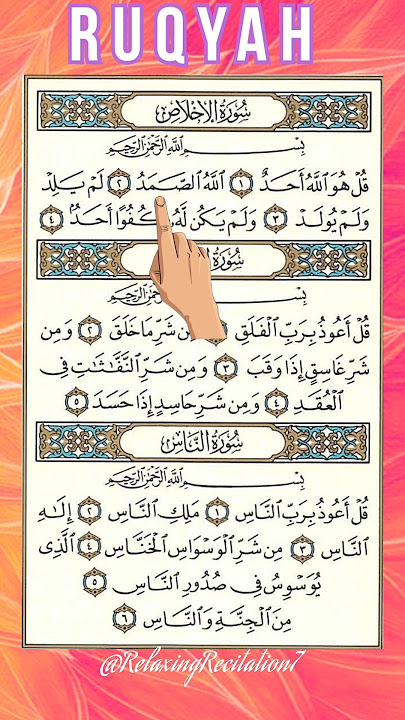 RUQYAH
سُورَةُ الإِخْلَاصِ
بِسْمِ ٱللَّهِ ٱلرَّحْمَٰنِ ٱلرَّحِيمِ
قُلْ هُوَ ٱللَّهُ أَحَدٌ ١ ٱللَّهُ ٱلصَّمَدُ ٢ لَمْ يَلِدْ
وَلَمْ يُولَدْ ٣ وَلَمْ يَكُن لَّهُۥ كُفُوًا أَحَدٌۢ ٤
سُورَةُ
بِسْمِ ٱلرَّحْمَٰنِ ٱلرَّحِيمِ
قُلْ أَعُوذُ بِرَبِّ ٱلْفَلَقِ مِن شَرِّ مَا خَلَقَ ٢ وَمِن
شَرِّ غَاسِقٍ إِذَا وَقَبَ ٣ وَمِن شَرِّ ٱلنَّفَّٰثَٰتِ فِى
ٱلْعُقَدِ ٤ وَمِن شَرِّ حَاسِدٍ إِذَا حَسَدَ ٥
سُورَةُ النَّاسِ
بِسْمِ ٱللَّهِ ٱلرَّحْمَٰنِ ٱلرَّحِيمِ
قُلْ أَعُوذُ بِرَبِّ ٱلنَّاسِ ١ مَلِكِ ٱلنَّاسِ ٢ إِلَٰهِ
ٱلنَّاسِ ٣ مِن شَرِّ ٱلْوَسْوَاسِ ٱلْخَنَّاسِ ٤ ٱلَّذِى
يُوَسْوِسُ فِى صُدُورِ ٱلنَّاسِ ٥
مِنَ ٱلْجِنَّةِ وَٱلنَّاسِ ٦
@RelaxingRecitation7